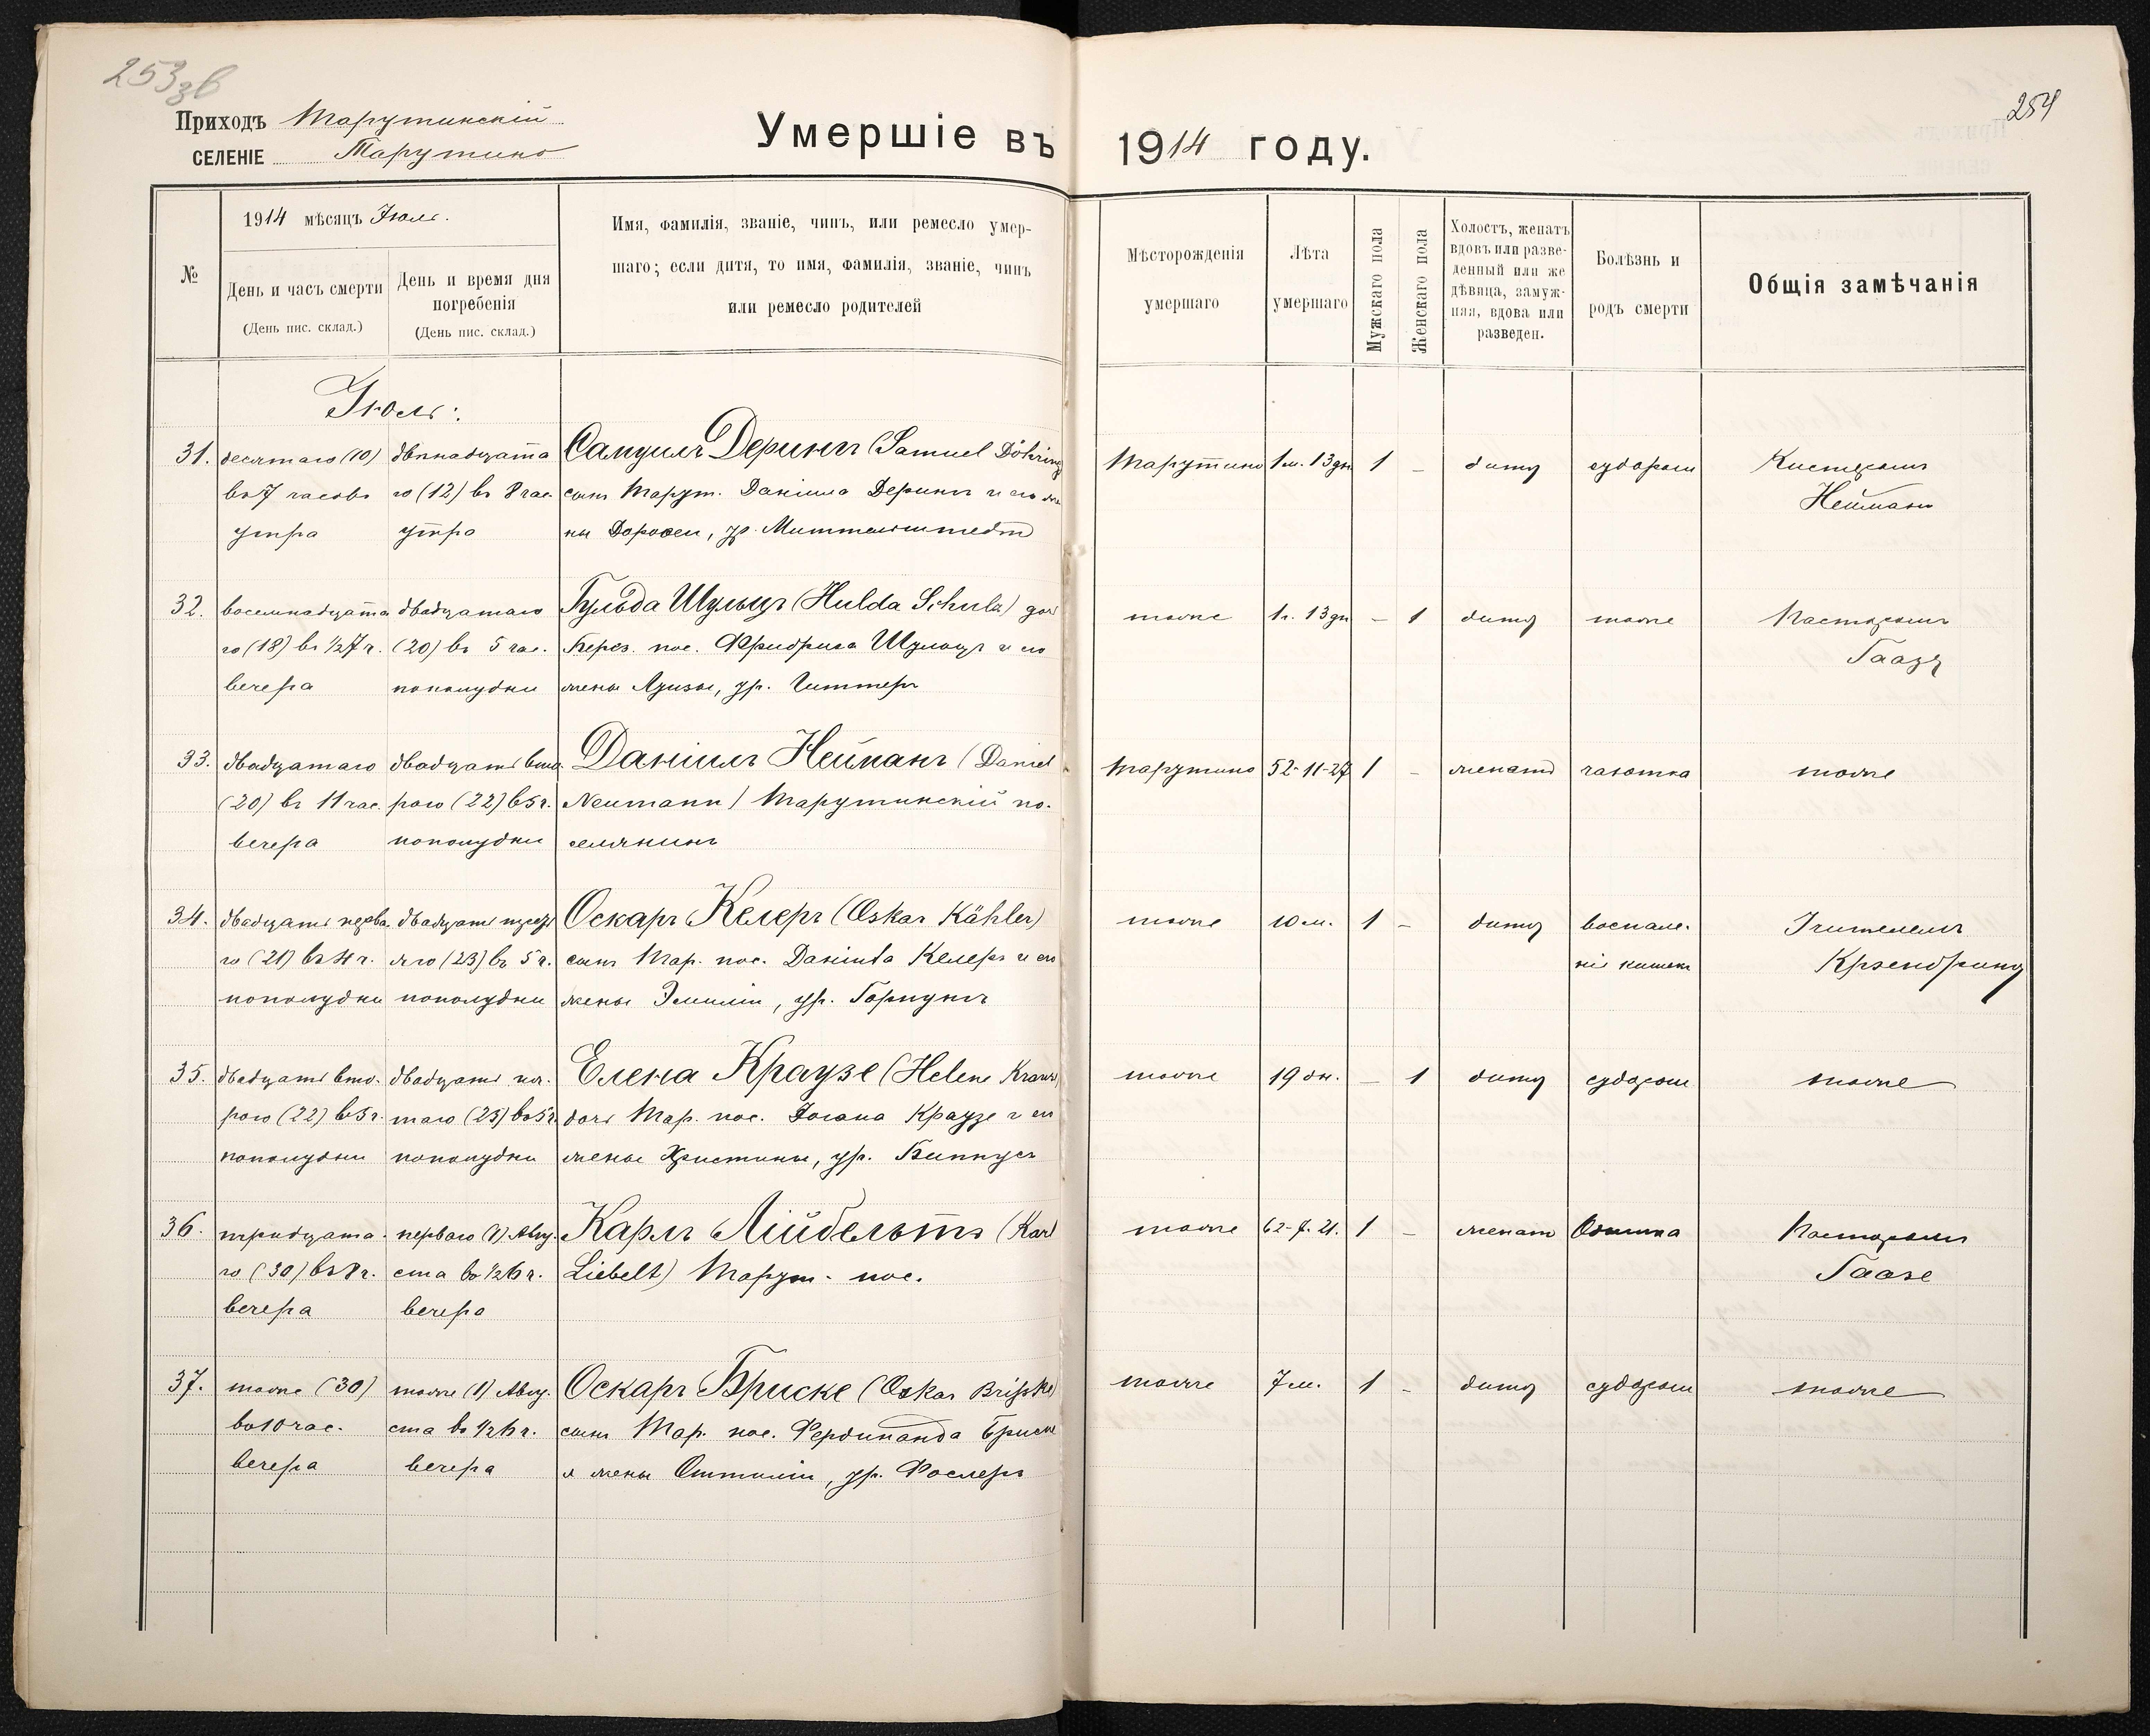 253зв
254
Приходъ Тарутинскій
СЕЛЕНІЕ Тарутино
Умершіе въ 1914 году.
№
1914 мѣсяцъ Іюль.
День и часъ смерти
(День пис. склад.)
День и время дня
погребенія
(День пис. склад.)
Имя, фамилія, званіе, чинъ, или ремесло умер-
шаго; если дитя, то имя, фамилія, званіе, чинъ
или ремесло родителей
Мѣсторожденія
умершаго
Лѣта
умершаго
Мужскаго пола
Женскаго пола
Холостъ, женатъ
вдовъ или разве-
денный или же
дѣвица, замуж-
няя, вдова или
разведен.
Болѣзнь и
родъ смерти
Общія замѣчанія
Іюль:
31. десятаго (10) двѣнадцата Самуилъ Дерингъ (Samuel Döhring Тарутино 1 м. 13 дн 1 – дитя судороги Кистеромъ
въ 7 часовъ го (12) въ 8 час. сынъ Тарут. Даніила Дерингъ и его же Нейманъ
утра утра ны Доротеи, ур. Миттельштедтъ
32. восемнадцата двадцатаго Гульда Шульцъ (Hulda Schulz) дочь тоже 1 г. 13 дн – 1 дитя тоже Пасторомъ
го (18) въ ½7 ч. (20) въ 5 час. Берез. пос. Фридриха Шульцъ и его Гаазе
вечера пополудни жены Луизы, ур. Циммеръ
33. двадцатаго двадцать вто Даніилъ Нейманъ (Daniel Тарутино 52-11-27 1 – женатъ чахотка тоже
(20) въ 11 час. рого (22) въ 5 ч. Neumann) Тарутинскій по-
вечера пополудни селянинъ
34. двадцать перва. двадцать треть Оскаръ Келеръ (Oskar Kähler) тоже 10 м. 1 – дитя воспале- Учителемъ
го (21) въ 4 ч. яго (23) въ 5 ч. сынъ Тар. пос. Даніила Келеръ и его ніе кишекъ
пополудни пополудни жены Эмиліи, ур. Горнунгъ
35. двадцать вто- двадцать пя- Елена Краузе (Helene Kraus тоже 19 дн. – 1 дитя судороги тоже
рого (22) въ 5 ч. таго (25) въ 5 ч. дочь Тар. пос. Іогана Краузе и его
пополудни пополудни жены Христины, ур. Биппусъ
36. тридцата- перваго (1) Авгу- Карлъ Лійбельтъ (Karl тоже 62-7-21. 1 – женатъ Пасторомъ
го (30) въ 8 ч. ста въ ½6 ч. Liebelt) Тарут. пос. Гаазе
вечера вечера
37. тоже (30) тоже (1) Авгу- Оскаръ Бриске (Oskar Briske) тоже 7 м. 1 – дитя судороги тоже
въ 10 час. ста въ ½6 ч. сынъ Тар. пос. Фердинанда Бриске
вечера вечера и жены Оттиліи, ур. Фослеръ